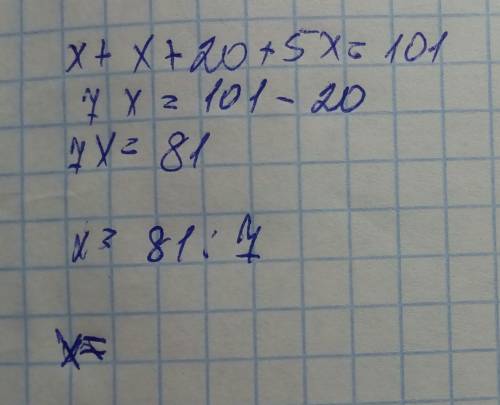 x + x + 20 + 5x = 101
7x = 101 - 20
7x = 81
x = 81 : 7
x =